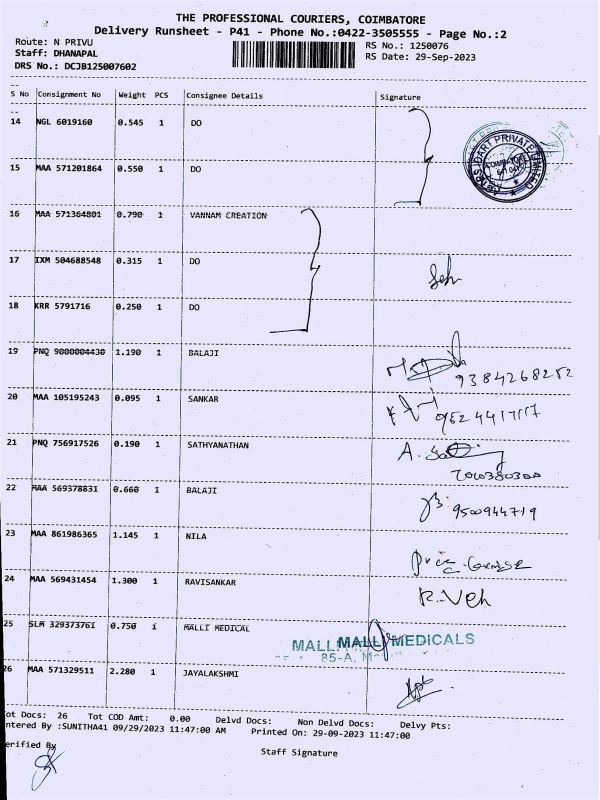 THE PROFESSIONAL COURIERS, COIMBATORE
Delivery Runsheet - P41 - Phone No.:0422-3505555 - Page No.:2
Route: N PRIVU
RS No.: 1250076
Staff: DHANAPAL
RS Date: 29-Sep-2023
DRS No.: DCJB125007602
S No Consignment No Weight PCS Consignee Details Signature
14 NGL 6019160 0.545 1 DO
15 MAA 571201864 0.550 1 DO
16 MAA 571364801 0.790 1 VANNAM CREATION
17 IXM 504688548 0.315 1 DO
18 KRR 5791716 0.250 1 DO
19 PNQ 9000004430 1.190 1 BALAJI
9384268252
20 MAA 105195243 0.095 1 SANKAR
21 PNQ 756917526 0.190 1 SATHYANATHAN
A.
22 MAA 569378831 0.660 1 BALAJI
9500944719
23 MAA 861986365 1.145 1 NILA
24 MAA 569431454 1.300 1 RAVISANKAR
25 SLM 329373761 0.750 1 MALLI MEDICAL
MALLI MEDICALS
85-A,
26 MAA 571329511 2.280 1 JAYALAKSHMI
ot Docs: 26 Tot COD Amt: 0.00 Delvd Docs: Non Delvd Docs: Delvy Pts:
ntered By :SUNITHA41 09/29/2023 11:47:00 AM Printed On: 29-09-2023 11:47:00
erified By
Staff Signature